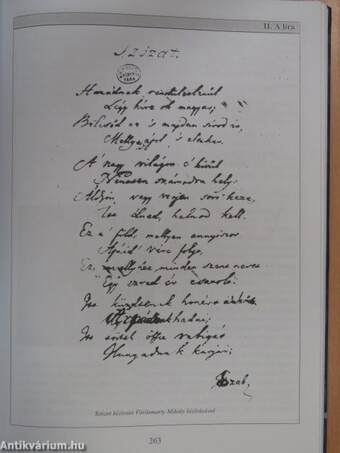 II. A líra
Szózat.
Hazádnak rendületlenűl
Légy híve oh magyar;
Bölcsőd az 's majdan sírod is,
Melly ápol 's eltakar.
A' nagy világon e' kivűl
Nincsen számodra hely;
Áldjon vagy verjen sors keze,
Itt élned, halnod kell.
Ez a' föld, mellyen annyiszor
Apáid vére folyt;
Ez, mellyhez minden szent nevet
Egy ezred év csatolt.
Itt küzdtenek honért a
hadai;
Itt törtek össze rabigát
Hunyadnak karjai;
Szózat kézirata Vörösmarty Mihály kézírásával
263
Antikvárium.hu